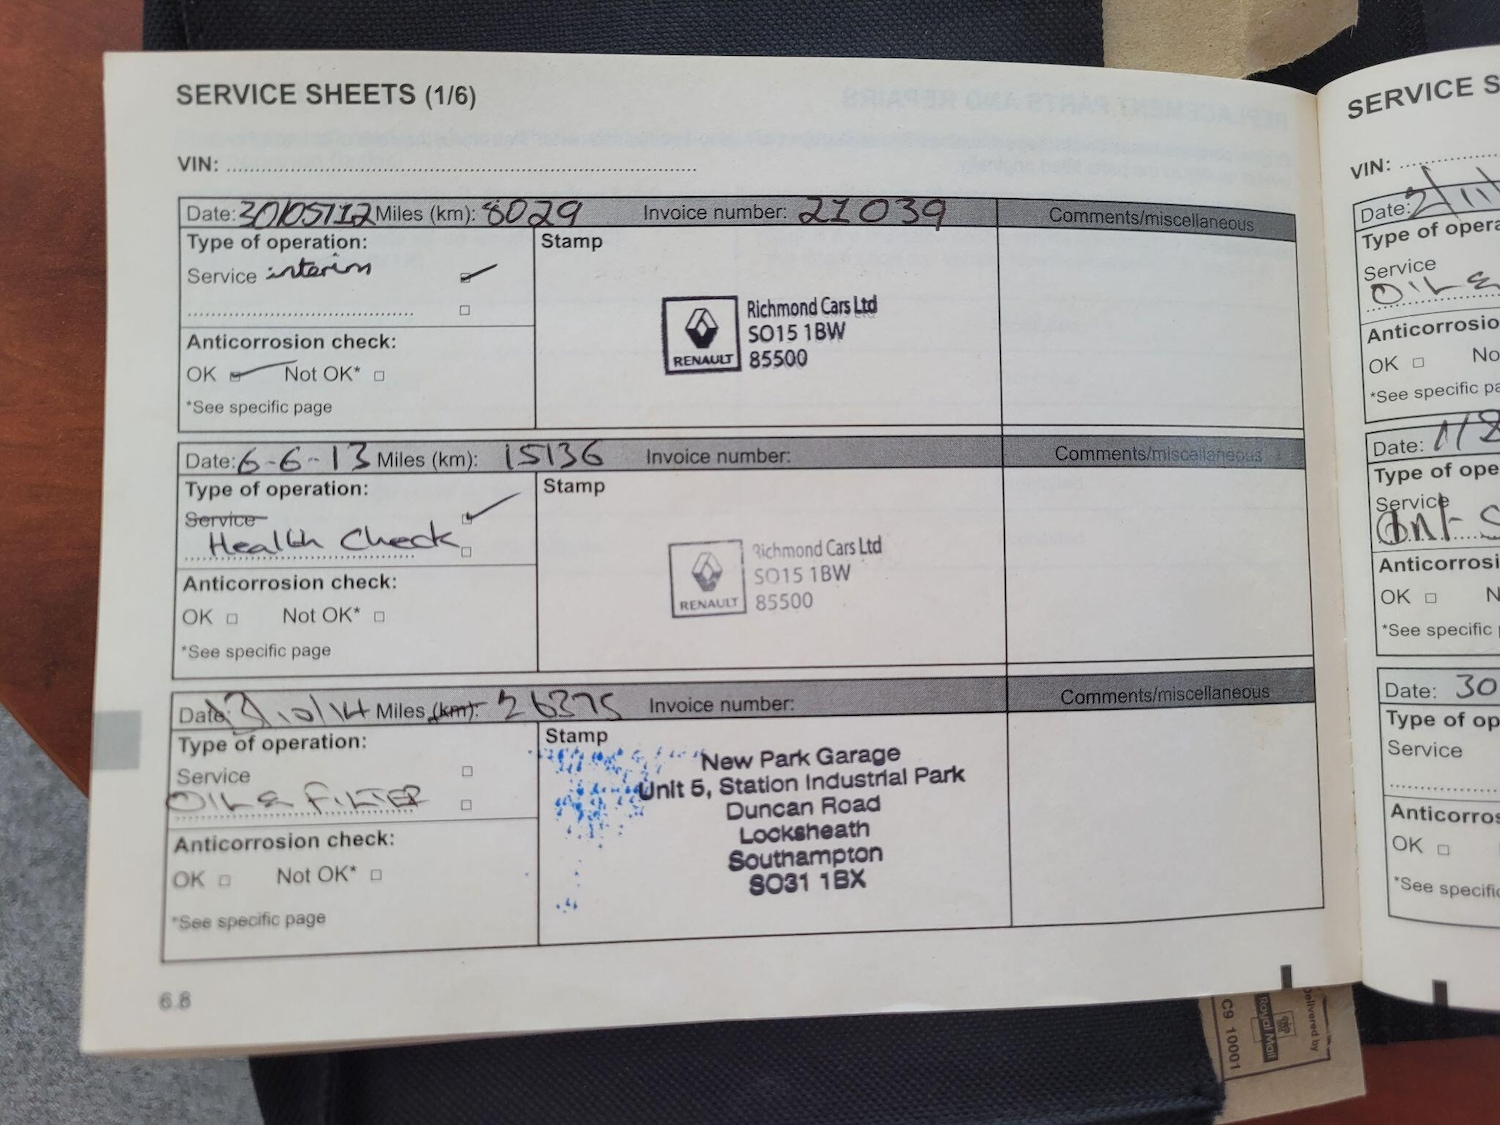 SERVICE SHEETS (1/6)
VIN:
Date: 30/05/12 Miles (km): 8029 Invoice number: 21039 Comments/miscellaneous
Type of operation: Stamp
Service interim
Richmond Cars Ltd
SO15 1BW
RENAULT 85500
Anticorrosion check:
OK Not OK*
*See specific page
Date: 6-6-13 Miles (km): 15136 Invoice number: Comments/miscellaneous
Type of operation: Stamp
Service
Health Check
Richmond Cars Ltd
SO15 1BW
RENAULT 85500
Anticorrosion check:
OK Not OK*
*See specific page
Date: 10/14 Miles (km): 26375 Invoice number: Comments/miscellaneous
Type of operation: Stamp
Service
OIL & FILTER
New Park Garage
Unit 5, Station Industrial Park
Duncan Road
Locksheath
Southampton
SO31 1BX
Anticorrosion check:
OK Not OK*
*See specific page
6.8
SERVICE S
VIN:
Date: 2/11
Type of opera
Service
OIL &
Anticorrosio
OK No
*See specific pa
Date:
Type of ope
Service
Int- S
Anticorrosi
OK N
*See specific
Date: 30
Type of op
Service
Anticorros
OK
*See specific
Delivered by
Royal Mail
C9 10001
REPLACEMENT PARTS AND REPAIRS